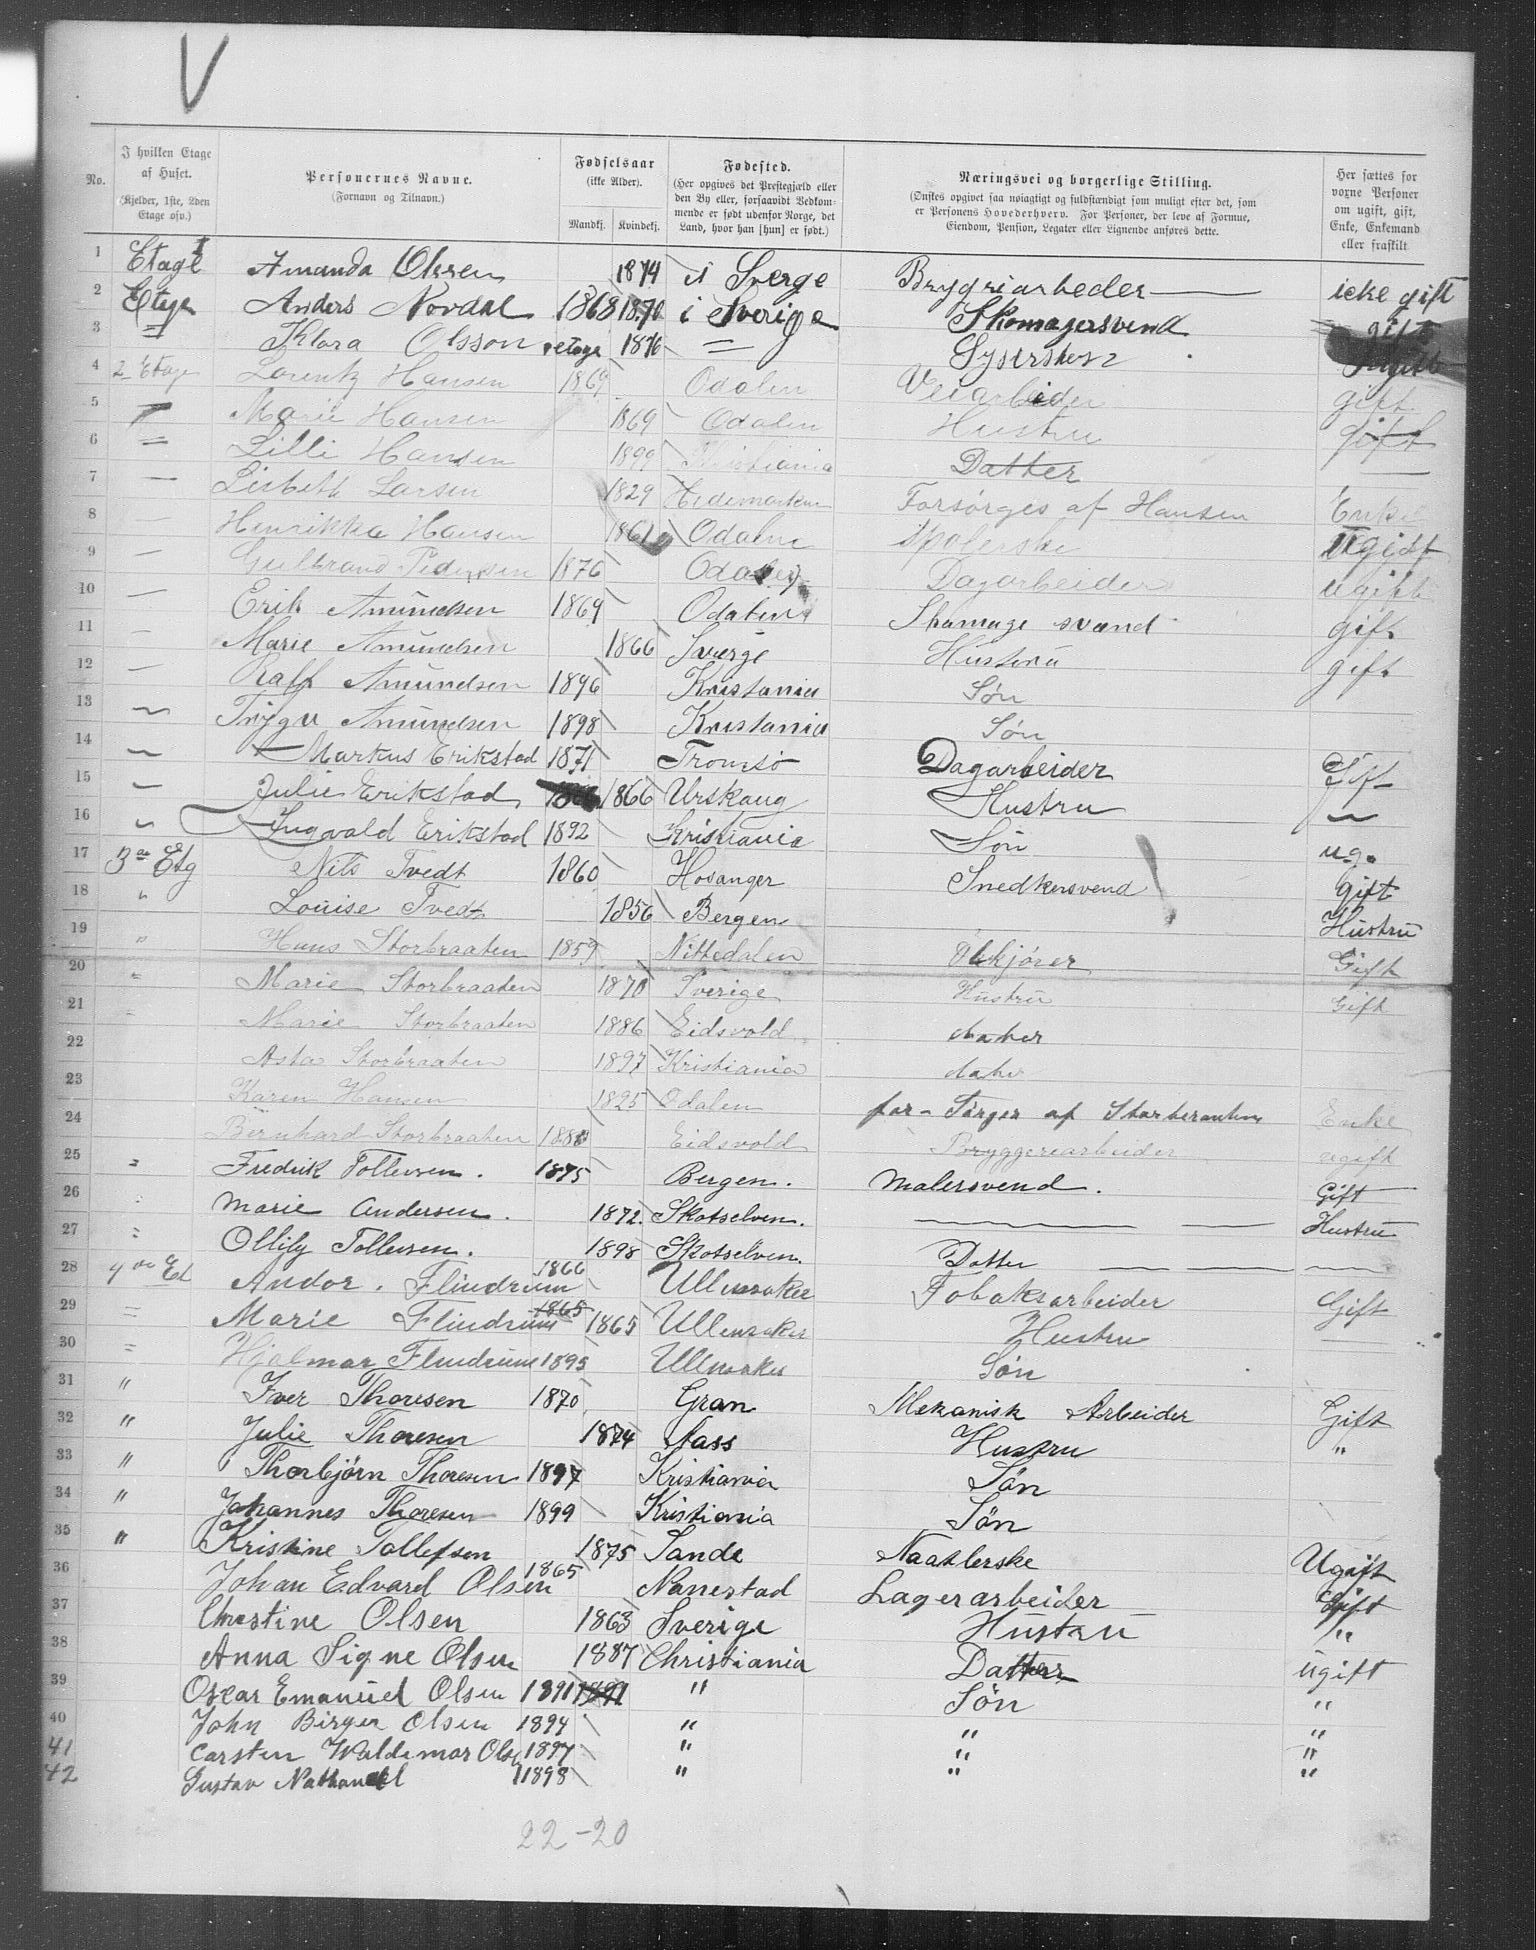 V
No.
I hvilken Etage af Huset. (Kjelder, 1ste, 2den Etage osv.)
Personernes Navne. (Fornavn og Tilnavn.)
Fødselsaar (ikke Alder). Mandkj. Kvindekj.
Fødested. (Her opgives det Prestegjæld eller den By eller, forsaavidt Vedkommende er født udenfor Norge, det Land, hvor han [hun] er født.)
Næringsvei og borgerlige Stilling. (Ønskes opgivet saa nøiagtigt og fuldstændigt som muligt efter det, som er Personens Hovederhverv. For Personer, der leve af Formue, Eiendom, Pension, Legater eller Lignende anføres dette.
Her sættes for voxne Personer om ugift, gift, Enke, Enkemand eller fraskilt.
1 Etage I Amanda Olssen 1874 i Sverge Brygriarbeder icke gift
2 Etage Anders Nordal 1868 1870 i Sverige Skomagersvend gift
3 = Klara Olsson etage 1876 = Sygerskesz Ugift
4 2 Etage Lorentz Hansen 1869 Odalen Veiarbeider gift
5 = Marie Hansen 1869 Odalen Hustru gift
6 = Lilli Hansen 1899 Kristiania Datter —
7 — Lisbeth Larsen 1829 Hedemarken Forsørges af Hansen Enke
8 — Henrikka Hansen 1861 Odalen Spolerske Ugift
9 — Gulbrand Pedersen 1876 Odalen Dagarbeider ugift
10 — Erik Amundsen 1869 Odalen Skomage svand gift
11 — Marie Amundsen 1866 Sverge Hustru gift
12 — Ralf Amundsen 1896 Kristania Søn
13 — Trygv Amundsen 1898 Kristania Søn
14 — Markus Erikstad 1871 Tromsø Dagarbeider Gift
15 — Julie Erikstad 1866 Urskaug Hustru —
16 " Ingvald Erikstad 1892 Kristiania Søn ug.
17 3de Etg Nils Tvedt 1860 Hosanger Snedkersvend gift
18 " Louise Tvedt 1856 Bergen Hustru
19 " Hans Storbraaten 1859 Nittedalen Ølkjører Gift
20 " Marie Storbraaten 1870 Sverige Hustru Gift
21 " Marie Storbraaten 1886 Eidsvold dater
22 Asta Storbraaten 1897 Kristiania dater
23 Karen Hansen 1825 Odalen for-Sørges af Storberaaten Enke
24 Bernhard Storbraaten 1880 Eidsvold Bryggeriarbeider ugift
25 " Fredrik Tollevsen. 1875 Bergen. Malersvend. Gift
26 " Marie Andersen. 1872. Skotselven. — — Hustru
27 " Ollily Tollevsen. 1898 Skotselven. Datter — — —
28 4de Et Andor. Flindrum 1866 Ullensaker Tobaksarbeider Gift
29 = Marie Flindrum 1865 1865 Ullensaker Hustru —
30 = Hjalmar Flindrum 1895 Ullensaker Søn
31 " Iver Thoresen 1870 Gran Mekanisk Arbeider Gift
32 " Julie Thoresen 1874 Aass Hustru "
33 " Thorbjørn Thoresen 1897 Kristiania Søn
34 " Johannes Thoresen 1899 Kristiania Søn
35 " Kristine Tollefsen 1875 Sande Naatlerske Ugift
36 Johan Edvard Olsen 1865 Nanestad Lagerarbeider Gift
37 Chrestine Olsen 1863 Sverige Hustru "
38 Anna Signe Olsen 1887 Christiania Datter ugift
39 Oscar Emanuel Olsen 1891 1891 " Søn "
40 John Birger Olsen 1894 " " "
41 Carsten Waldemar Olsen 1897 " " "
42 Gustav Nathanael 1898 " " "
22-20